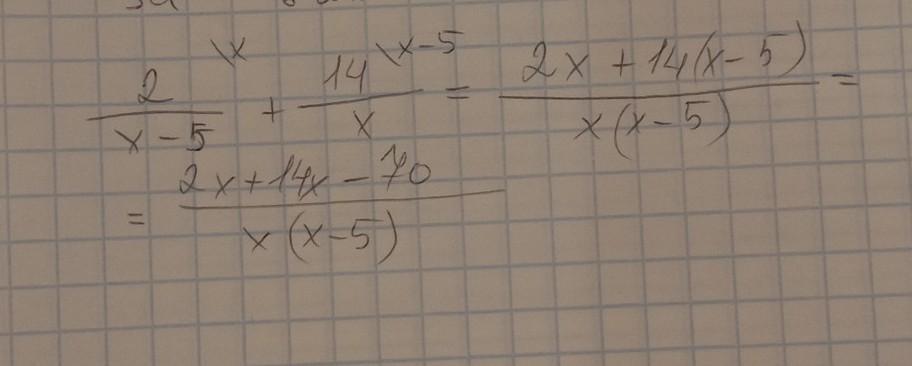 \frac{2^{\backslash x}}{x-5} + \frac{14^{\backslash x-5}}{x} = \frac{2x+14(x-5)}{x(x-5)} =
= \frac{2x+14x-70}{x(x-5)}